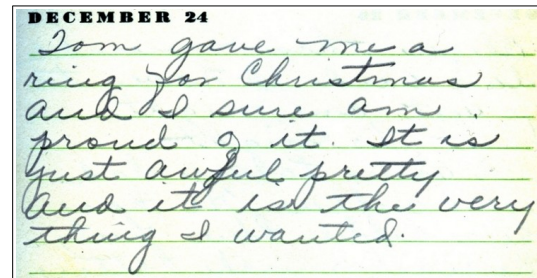 DECEMBER 24
Tom gave me a
ring for Christmas
and I sure am
proud of it. It is
just awful pretty
and it is the very
thing I wanted.